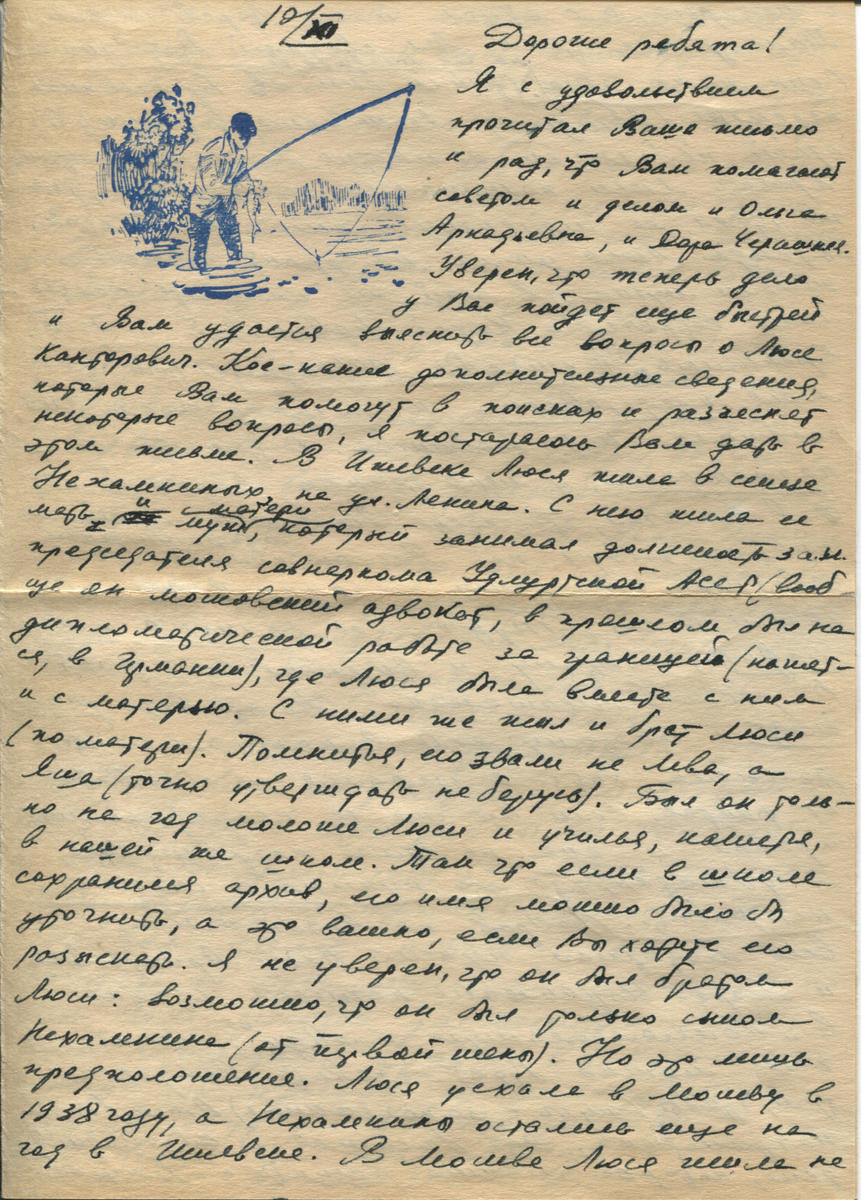 19/XI
Дорогие ребята!
Я с удовольствием
прочитал Ваше письмо
и рад, что Вам помогают
советом и делом и Ольга
Аркадьевна, и Дора Черашняя.
Уверен, что теперь дело
у Вас пойдет еще быстрей
и Вам удастся выяснить все вопросы о Люсе
Канторович. Кое-какие дополнительные сведения,
которые Вам помогут в поисках и разъяснят
некоторые вопросы, я постараюсь Вам дать в
этом письме. В Ижевске Люся жила в семье
Нехамкиных на ул. Ленина. С нею жила ее
мать и муж матери, который занимал должность зам.
председателя совнаркома Удмуртской АССР (вооб
ще он московский адвокат, в прошлом был на
дипломатической работе за границей (кажет-
ся, в Германии), где Люся была вместе с ним
и с матерью. С ними же жил и брат Люси
(по матери). Помнится, его звали не Лева, а
Яша (точно утверждать не берусь). Был он толь-
ко на год моложе Люси и учился, кажется,
в нашей же школе. Так что если в школе
сохранился архив, его имя можно было бы
уточнить, а это важно, если Вы хотите его
разыскать. Я не уверен, что он был братом
Люси: возможно, что он был только сыном
Нехамкина (от первой жены). Но это лишь
предположение. Люся уехала в Москву в
1938 году, а Нехамкины остались еще на
год в Ижевске. В Москве Люся жила не